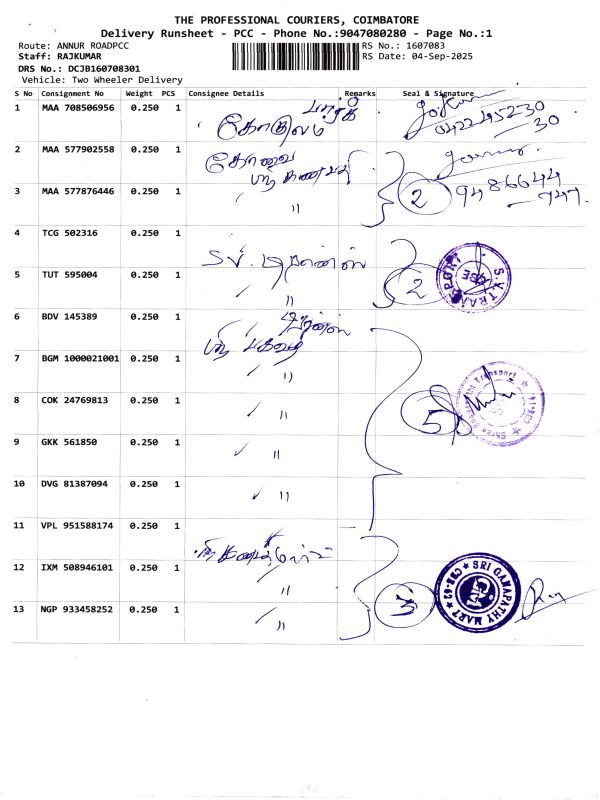 THE PROFESSIONAL COURIERS, COIMBATORE
Delivery Runsheet - PCC - Phone No.:9047080280 - Page No.:1
Route: ANNUR ROADPCC
RS No.: 1607083
Staff: RAJKUMAR
RS Date: 04-Sep-2025
DRS No.: DCJB160708301
Vehicle: Two Wheeler Delivery
S No Consignment No Weight PCS Consignee Details Remarks Seal & Signature
1 MAA 708506956 0.250 1
2 MAA 577902558 0.250 1 கோவை
3 MAA 577876446 0.250 1 " 2
4 TCG 502316 0.250 1 S.V.
5 TUT 595004 0.250 1 " 2
6 BDV 145389 0.250 1
7 BGM 1000021001 0.250 1 "
8 COK 24769813 0.250 1 " 5
9 GKK 561850 0.250 1 "
10 DVG 81387094 0.250 1 "
11 VPL 951588174 0.250 1
12 IXM 508946101 0.250 1 "
13 NGP 933458252 0.250 1 " 3
SRI GANAPATHY MART